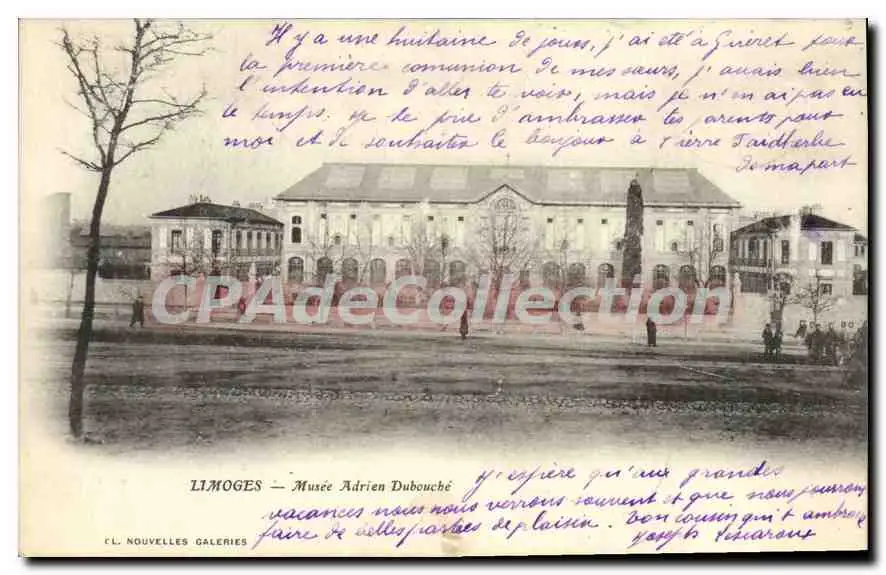 Il y a une huitaine de jours, j'ai été à Guéret pour
la première communion de mes sœurs, j'avais bien
l'intention d'aller te voir, mais je n'en ai pas eu
le temps. Je te prie d'ambrasser tes parents pour
moi et de souhaiter le bonjour à Pierre Faidherbe
de ma part
CPA De Collection.com
LIMOGES — Musée Adrien Dubouché
J'espère qu'aux grandes
vacances nous nous verrons souvent et que nous pourrons
faire de belles parties de plaisir. Ton cousin qui t'ambrasse
Joseph
CL. NOUVELLES GALERIES